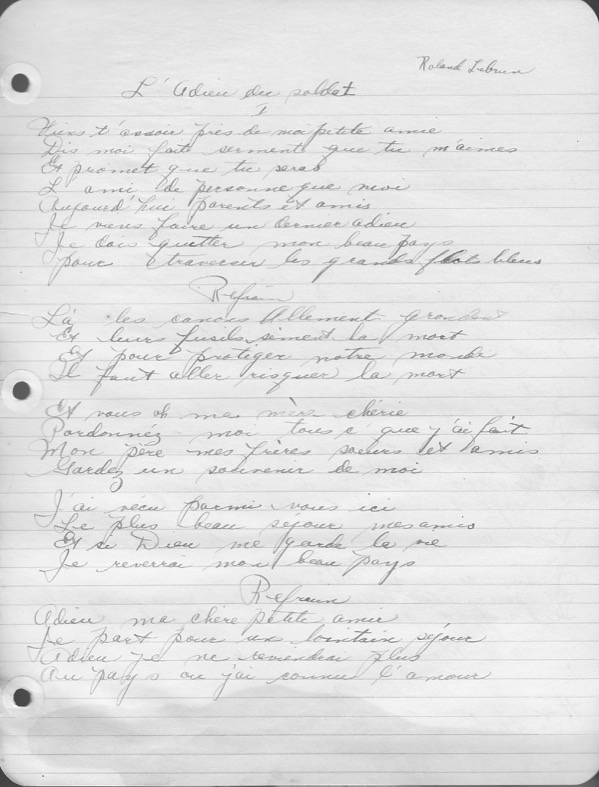 Roland Lebrun
L'Adieu du soldat
I
Viens t'assoir près de moi petite amie
Dis moi faits serments que tu m'aimes
Et promet que tu seras
L'ami de personne que moi
Aujourd'hui parents et amis
Je viens faire un dernier adieu
Je dois quitter mon beau pays
pour traverser les grands flots bleus
Refrain
Là les canons Allement grondent
Et leurs fusils siment la mort
Et pour protiger notre monde
Il faut aller risquer la mort
Et vous oh ma mère chérie
Pardonnéz moi tous c que j'ai fait
Mon père mes frères soeurs et amis
Gardez un souvenir de moi
J'ai vécu parmi vous ici
Le plus beau séjour mes amis
Et si Dieu me garde la vie
Je reverrai mon beau pays
Refrain
Adieu ma chère petite amie
Je part pour un lointain séjour
Adieu je ne reviendrai plus
Au pays ou j'ai connu l'amour